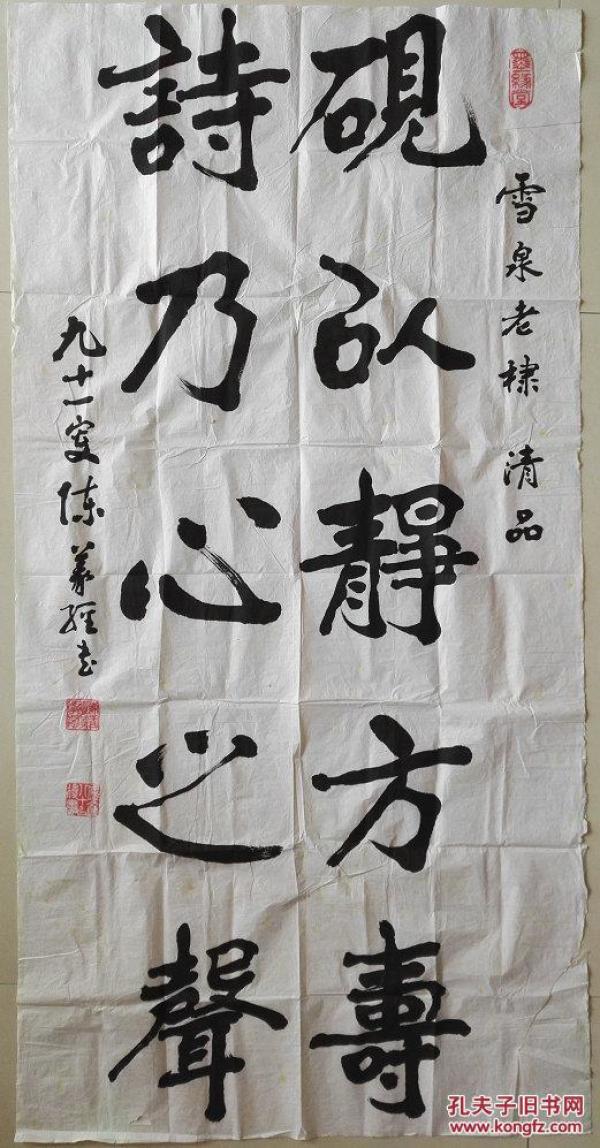 雪泉老棣 清品
硯以靜方壽
詩乃心之聲
九十一叟陳義經書
孔夫子旧书网
www.kongfz.com